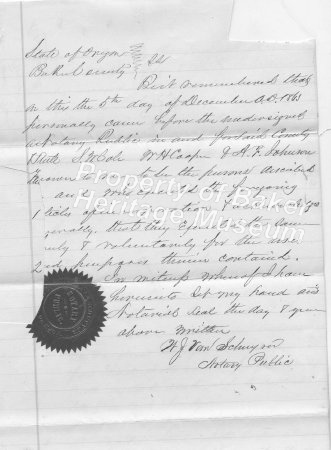 State of Oregon
Baker County } SS
Be it remembered that
on this the 5th day of December A.D. 18
personally came before the undersigned
a Notary Public in and for said County
& State S. W. Cole W H Cooper & A. F. Johnson
known to to be the persons described
and who executed the foregoing
Property of Baker
Heritage Museum
that they executed the same
freely & voluntarily for the uses
and purposes therein contained.
In witness whereof I have
hereunto set my hand and
Notarial Seal the day & year
above written
W J Van Schuyver
Notary Public